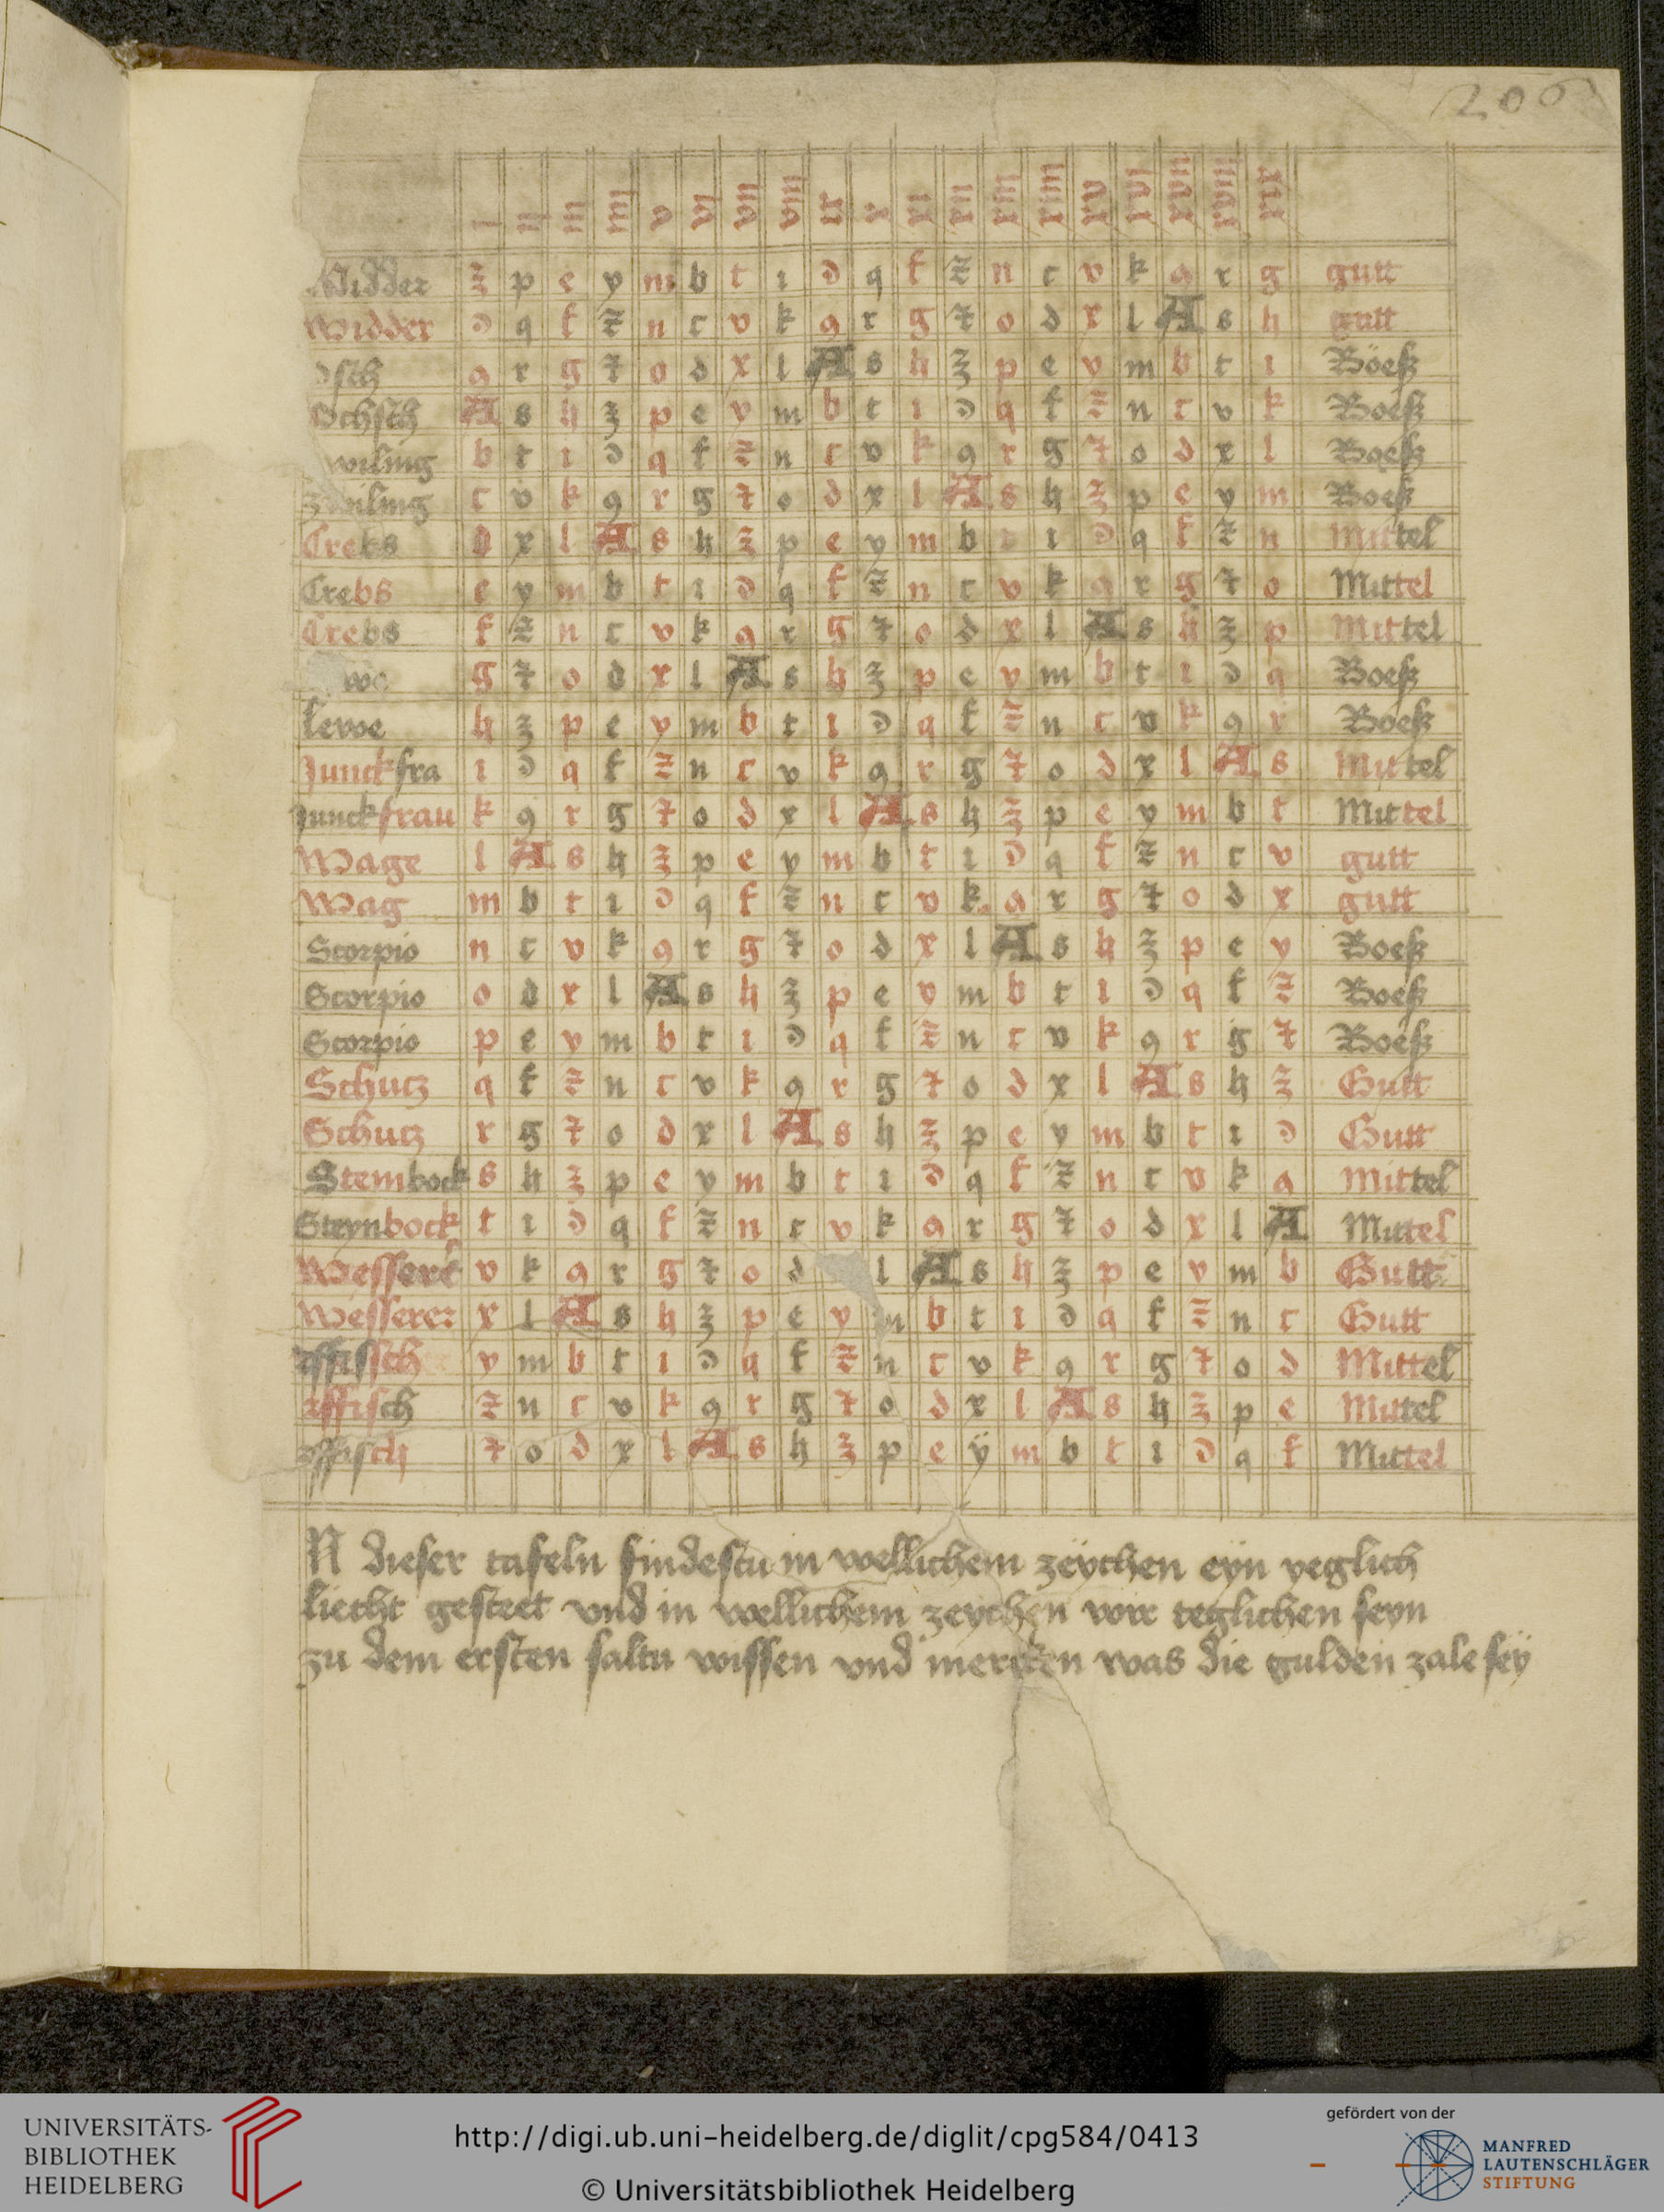 200
i ii iii iiii v vi vii viii ix x xi xii xiii xiiii xv xvi xvii xviii xix
Widder ꝫ p e y m b t i ꝺ q f z̄ n c v k 9 r g gutt
Widder ꝺ q f z̄ n c v k 9 r g ⁊ o d x l A s h gutt
9 r g ⁊ o d x l A s h ꝫ p e y m b t i Böeß
Ochsch A s h ꝫ p e y m b t i ꝺ q f z̄ n c v k Boeß
wiling b t i ꝺ q f z̄ n c v k 9 r g ⁊ o d x l Boeß
zwiling c v k 9 r g ⁊ o d x l A s h ꝫ p e y m Boeß
Crebs d x l A s h ꝫ p e y m b t i ꝺ q f z̄ n Mittel
Crebs e y m b t i ꝺ q f z̄ n c v k 9 r g ⁊ o Mittel
Crebs f z̄ n c v k 9 r g ⁊ o d x l A s h ꝫ p Mittel
we g ⁊ o d x l A s h ꝫ p e y m b t i ꝺ q Boeß
lewe h ꝫ p e y m b t i ꝺ q f z̄ n c v k 9 r Boeß
Junckfra i ꝺ q f z̄ n c v k 9 r g ⁊ o d x l A s Mittel
Junckfrau k 9 r g ⁊ o d x l A s h ꝫ p e y m b t Mittel
Wage l A s h ꝫ p e y m b t i ꝺ q f z̄ n c v gutt
Wag m b t i ꝺ q f z̄ n c v k 9 r g ⁊ o d x gutt
Scorpio n c v k 9 r g ⁊ o d x l A s h ꝫ p e y Boeß
Scorpio o d x l A s h ꝫ p e y m b t i ꝺ q f z̄ Boeß
Scorpio p e y m b t i ꝺ q f z̄ n c v k 9 r g ⁊ Boeß
Schucz q f z̄ n c v k 9 r g ⁊ o d x l A s h ꝫ Gutt
Schucz r g ⁊ o d x l A s h ꝫ p e y m b t i ꝺ Gutt
Steinbock s h ꝫ p e y m b t i ꝺ q f z̄ n c v k 9 Mittel
Steynbock t i ꝺ q f z̄ n c v k 9 r g ⁊ o d x l A Mittel
Wesserer v k 9 r g ⁊ o d l A s h ꝫ p e y m b Gutt
Wesserer x l A s h ꝫ p e y m b t i ꝺ q f z̄ n c Gutt
y m b t i ꝺ q f z̄ n c v k 9 r g ⁊ o d Mittel
z̄ n c v k 9 r g ⁊ o d x l A s h ꝫ p e Mittel
⁊ o d x l A s h ꝫ p e ÿ m b t i ꝺ q f Mittel
N dieser tafeln findestu in wellichem zeychen eyn yeglich
liecht gestret vnd in wellichem zeychen wir teglichen seyn
zu dem ersten saltu wissen vnd mercken was die gulden zale seÿ
UNIVERSITÄTS-
BIBLIOTHEK
HEIDELBERG
http://digi.ub.uni-heidelberg.de/diglit/cpg584/0413
© Universitätsbibliothek Heidelberg
gefördert von der
MANFRED
LAUTENSCHLÄGER
STIFTUNG